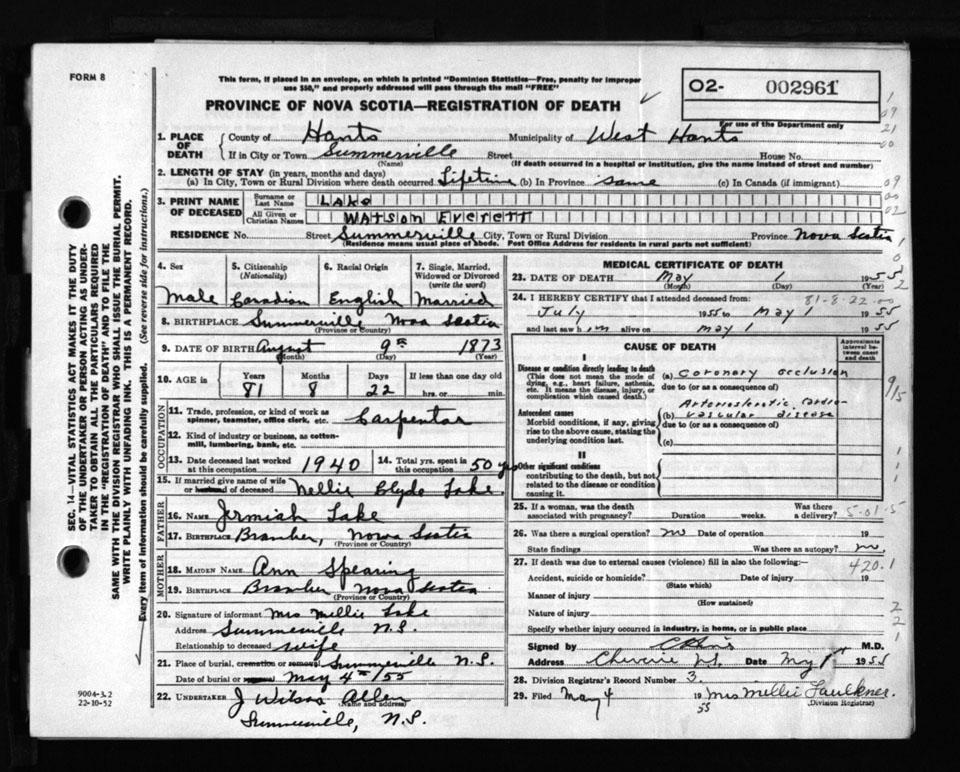 FORM 8
This form, if placed in an envelope, on which is printed "Dominion Statistics—Free, penalty for improper
use $50," and properly addressed will pass through the mail "FREE"
PROVINCE OF NOVA SCOTIA—REGISTRATION OF DEATH
02- 002961
For use of the Department only
1. PLACE OF DEATH County of Hants Municipality of West Hants
If in City or Town Summerville Street House No.
(Name) (If death occurred in a hospital or institution, give the name instead of street and number)
2. LENGTH OF STAY (in years, months and days)
(a) In City, Town or Rural Division where death occurred Lifetime (b) In Province same (c) In Canada (if immigrant)
3. PRINT NAME OF DECEASED Surname or Last Name LAKE
All Given or Christian Names WATSON EVERETT
RESIDENCE No. Street Summerville City, Town or Rural Division Province Nova Scotia
(Residence means usual place of abode. Post Office Address for residents in rural parts not sufficient)
4. Sex Male
5. Citizenship (Nationality) Canadian
6. Racial Origin English
7. Single, Married, Widowed or Divorced (write the word) Married
8. BIRTHPLACE Summerville Nova Scotia
(Province or Country)
9. DATE OF BIRTH August 9th 1873
(Month) (Day) (Year)
10. AGE in Years Months Days If less than one day old
81 8 22 hrs. or min.
OCCUPATION
11. Trade, profession, or kind of work as spinner, teamster, office clerk, etc. Carpentar
12. Kind of industry or business, as cotton-mill, lumbering, bank, etc.
13. Date deceased last worked at this occupation 1940
14. Total yrs. spent in this occupation 50 yrs
15. If married give name of wife or husband of deceased Nellie Clyde Lake.
FATHER
16. NAME Jermiah Lake
17. BIRTHPLACE Bramber, Nova Scotia
(Province or Country)
MOTHER
18. MAIDEN NAME Ann Spearing
19. BIRTHPLACE Bramber Nova Scotia
(Province or Country)
20. Signature of informant Mrs Nellie Lake
Address Summerville N.S.
Relationship to deceased wife
21. Place of burial, cremation or removal Summerville N.S.
Date of burial or removal May 4th/55
22. UNDERTAKER J Wilson Allen
(Name and address)
Summerville, N.S.
MEDICAL CERTIFICATE OF DEATH
23. DATE OF DEATH May 1 1955
(Month) (Day) (Year)
81-8-22-00
24. I HEREBY CERTIFY that I attended deceased from:
July 1955 to May 1 1955
and last saw him alive on May 1 1955
CAUSE OF DEATH
Approximate interval between onset and death
I
Disease or condition directly leading to death (a) Coronary occlusion
(This does not mean the mode of dying, e.g., heart failure, asthenia, etc. It means the disease, injury, or complication which caused death.) due to (or as a consequence of)
Antecedent causes
Morbid conditions, if any, giving rise to the above cause, stating the underlying condition last.
(b) Arteriosclerotic cardiovascular disease
due to (or as a consequence of)
(c)
II
Other significant conditions
contributing to the death, but not related to the disease or condition causing it.
25. If a woman, was the death associated with pregnancy? Duration weeks. Was there a delivery? 5-01-5
26. Was there a surgical operation? no Date of operation 19
State findings Was there an autopsy? no
27. If death was due to external causes (violence) fill in also the following:— 420.1
Accident, suicide or homicide? Date of injury 19
(State which)
Manner of injury
(How sustained)
Nature of injury
Specify whether injury occurred in industry, in home, or in public place
Signed by M.D.
Address Cheverie N.S. Date May 1955
28. Division Registrar's Record Number 3.
29. Filed May 4 1955 Mrs Millie Faulkner
(Division Registrar)
SEC. 14—VITAL STATISTICS ACT MAKES IT THE DUTY
OF THE UNDERTAKER OR PERSON ACTING AS UNDER-
TAKER TO OBTAIN ALL THE PARTICULARS REQUIRED
IN THE "REGISTRATION OF DEATH" AND TO FILE THE
SAME WITH THE DIVISION REGISTRAR WHO SHALL ISSUE THE BURIAL PERMIT.
WRITE PLAINLY WITH UNFADING INK. THIS IS A PERMANENT RECORD.
Every item of information should be carefully supplied. (See reverse side for instructions.)
9004-3.2
22-10-52